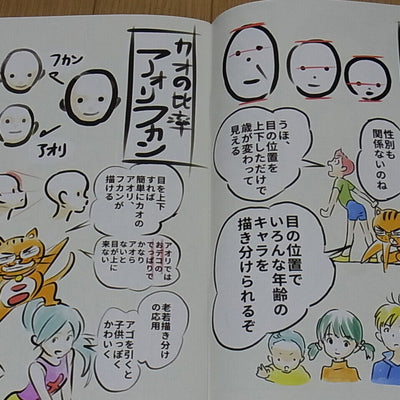 性別も
関係ないのね
うほ、
目の位置を
上下しただけで
歳が変わって
見える
目の位置で
いろんな年齢の
キャラを
描き分けられるぞ
カオの比率
アオリフカン
フカン
アオリ
目を上下
すれば
簡単にカオの
アオリ
フカンが
描ける
アオリでは
おデコの
でっぱりで
かなり
アオら
ないと
目が上に
来ない
老若描き分け
の応用
アゴを引くと
子供っぽく
かわいく